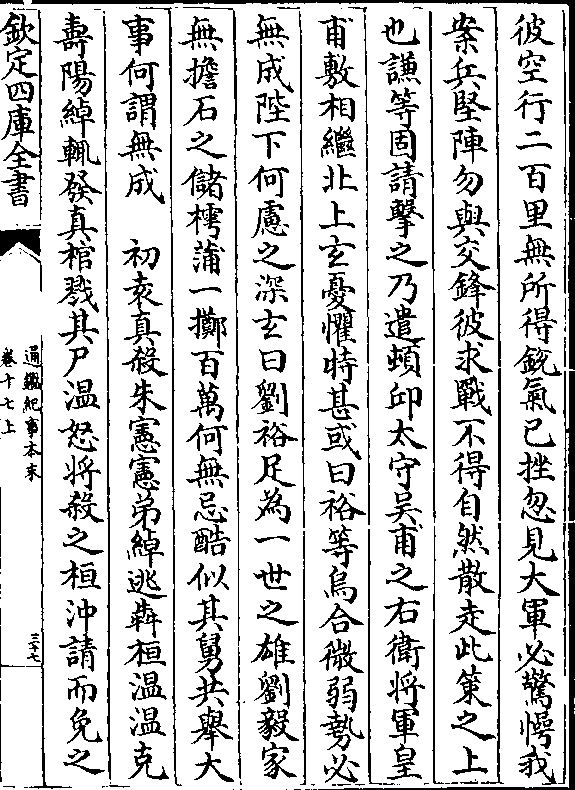 彼空行二百里無所得鋭氣已挫忽見大軍必驚愕我
案兵堅陣勿與交鋒彼求戰不得自然散走此策之上
也謙等固請擊之乃遣頓邱太守吳甫之右衛将軍皇
甫敷相繼北上玄憂懼特甚或曰裕等烏合微弱勢必
無成陛下何慮之深玄曰劉裕足為一世之雄劉毅家
無擔石之儲樗蒲一擲百萬何無忌酷似其舅共舉大
事何謂無成　初袁真殺朱憲憲弟綽逃犇桓温温克
壽陽綽輒發真棺戮其尸温怒将殺之桓沖請而免之
欽定四庫全書
通鑑紀事本末
卷十七上
三十七